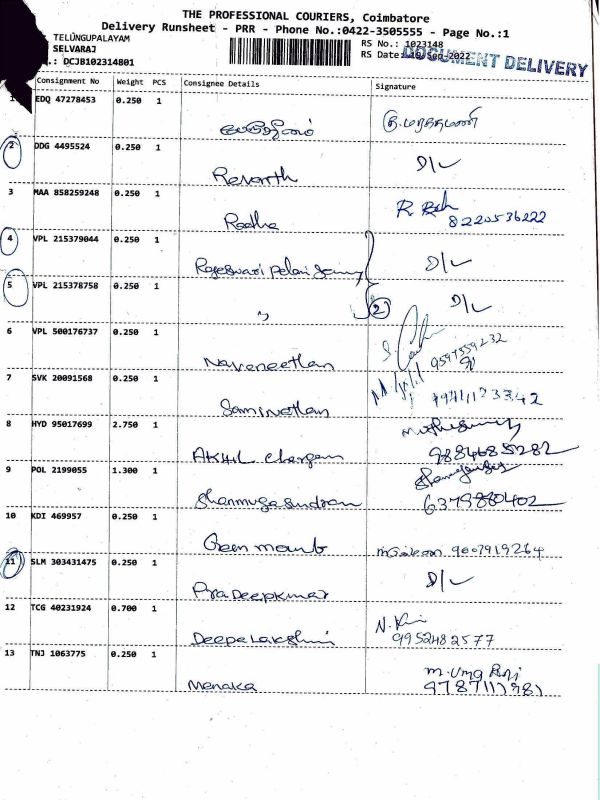 THE PROFESSIONAL COURIERS, Coimbatore
Delivery Runsheet - PRR - Phone No.:0422-3505555 - Page No.:1
TELUNGUPALAYAM
SELVARAJ
.: DCJB102314801
RS No.: 1023148
RS Date: -Sep-2022
DOCUMENT DELIVERY
Consignment No Weight PCS Consignee Details Signature
1 EDQ 47278453 0.250 1
2 DDG 4495524 0.250 1
Revanth D/L
3 MAA 858259248 0.250 1
Radha R.
8220536222
4 VPL 215379044 0.250 1
Rajeswari D/L
5 VPL 215378758 0.250 1
" 2 D/L
6 VPL 500176737 0.250 1
Naveneethan 9597559232
7 SVK 20091568 0.250 1
Saminathan
8 HYD 95017699 2.750 1
AKHIL 9884685282
9 POL 2199055 1.300 1
Shanmugasundram 6379880402
10 KDI 469957 0.250 1
Green 9007919264
11 SLM 303431475 0.250 1
PraDeepkumar D/L
12 TCG 40231924 0.700 1
Deepalakshmi N.
9952482577
13 TNJ 1063775 0.250 1
Menaka M. Uma